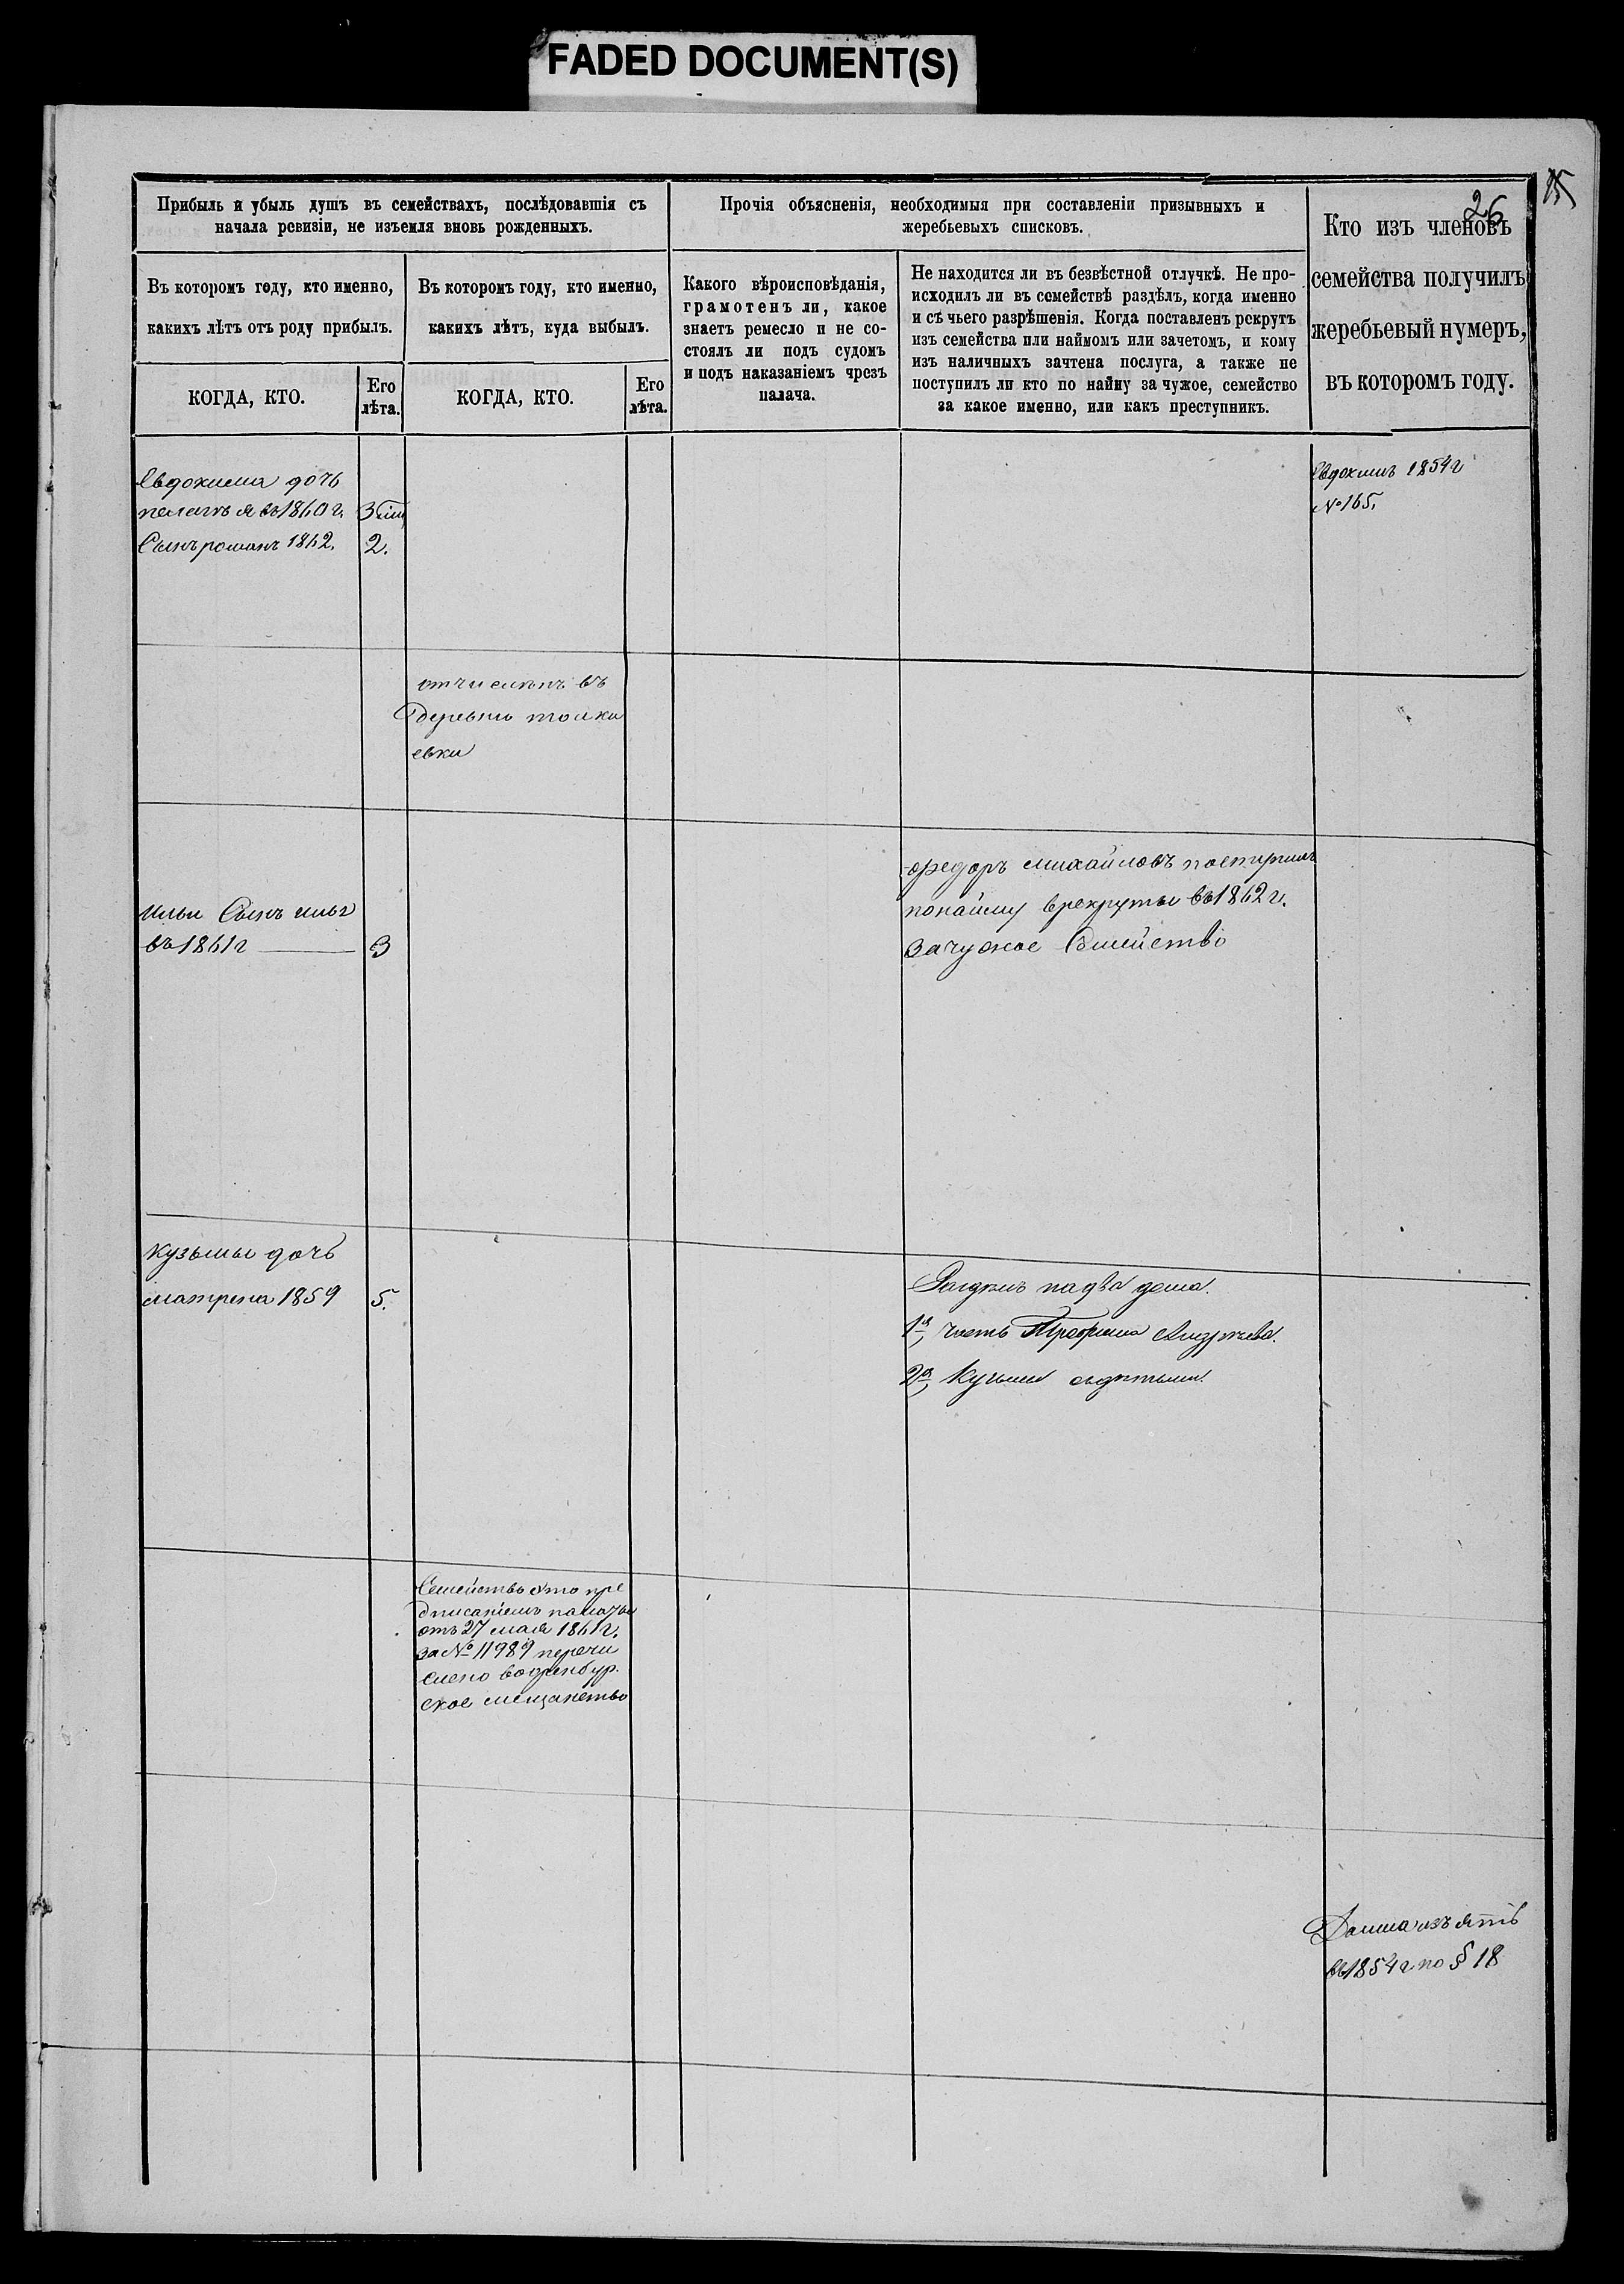 FADED DOCUMENT(S)
26
Прибыль и убыль душъ въ семействахъ, послѣдовавшія съ
начала ревизіи, не изъемля вновь рожденныхъ.
Въ которомъ году, кто именно,
какихъ лѣтъ отъ роду прибылъ.
КОГДА, КТО.
Его
лѣта.
Въ которомъ году, кто именно,
какихъ лѣтъ, куда выбылъ.
КОГДА, КТО.
Его
лѣта.
Прочія объясненія, необходимыя при составленіи призывныхъ и
жеребьевыхъ списковъ.
Какого вѣроисповѣданія,
грамотенъ ли, какое
знаетъ ремесло и не со-
стоялъ ли подъ судомъ
и подъ наказаніемъ чрезъ
палача.
Не находится ли въ безвѣстной отлучкѣ. Не про-
исходилъ ли въ семействѣ раздѣлъ, когда именно
и съ чьего разрѣшенія. Когда поставленъ рекрутъ
изъ семейства или наймомъ или зачетомъ, и кому
изъ наличныхъ зачтена послуга, а также не
поступилъ ли кто по найму за чужое, семейство
за какое именно, или какъ преступникъ.
Кто изъ членовъ
семейства получилъ
жеребьевый нумеръ,
въ которомъ году.
Евдокима дочь
пелагѣя въ 1860 г. 3
Сынъ романъ 1862. 2.
Евдокимъ 1854 г
№ 165.
отчисленъ въ
деревню
евки
Ильи Сынъ
въ 1861 г 3
федоръ михайловъ поступилъ
понайму врекруты въ 1862 г.
за чужое Семейство
Кузьмы дочь
матрена 1859 5.
на два дома.
1я часть Трофима Андреева.
2я Кузьмы съдѣтьми.
Семейство это пре
дписаніемъ палаты
отъ 27 мая 1861 г.
за № 11989 перечи
слено воренбур.
ское мещанство
изъятъ
въ 1854 г по § 18